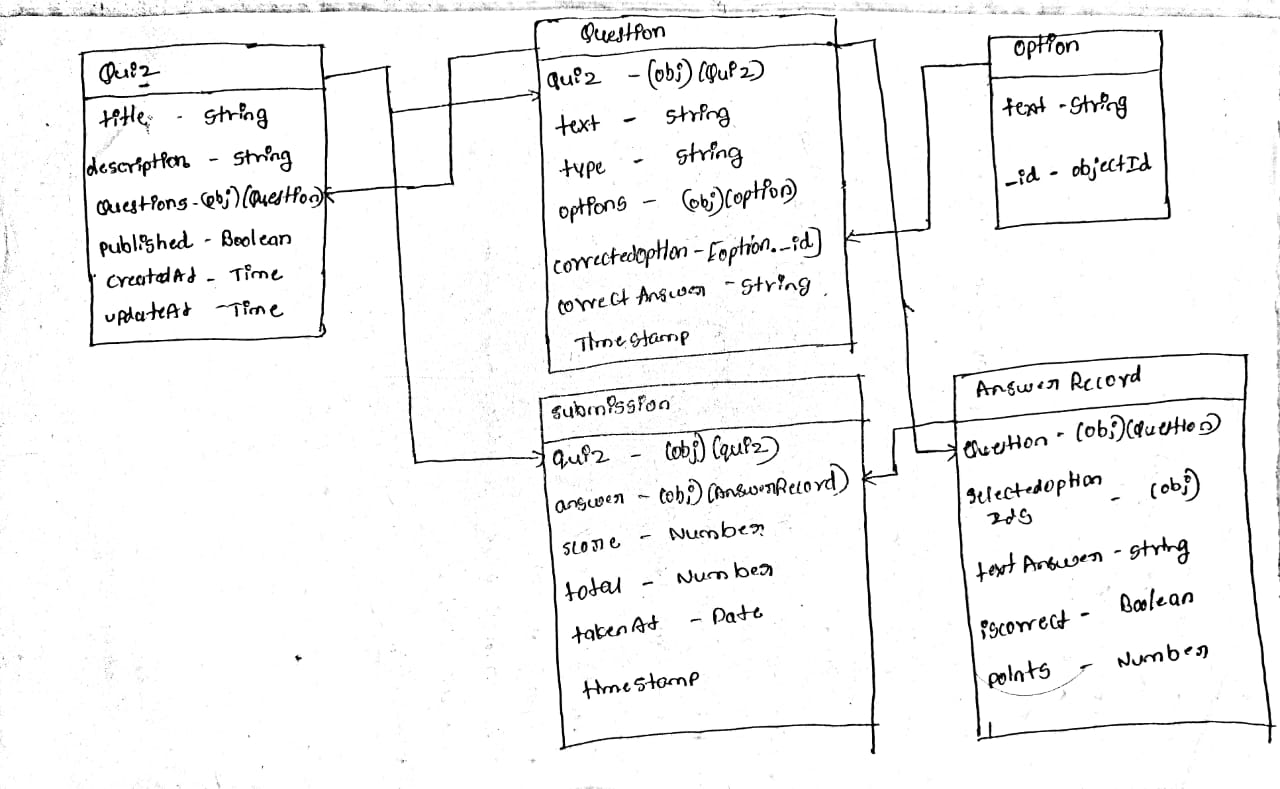 Quiz
title - string
description - string
Questions - (obj) (Question)
published - Boolean
createdAt - Time
updateAt - Time
Question
Quiz - (obj) (Quiz)
text - string
type - string
options - (obj) (option)
correctedoption - [option._id]
correct Answer - string.
Timestamp
option
text - string
_id - objectId
submission
quiz - (obj) (quiz)
answer - (obj) (AnswerRecord)
score - Number
total - Number
takenAt - Date
timestamp
Answer Record
Question - (obj) (Question)
selectedoption - (obj)
Ids
text Answer - string
iscorrect - Boolean
points - Number